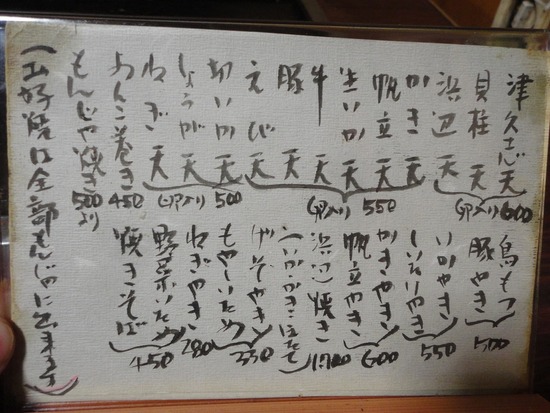 津久志天
貝柱天
浜辺天
(卵入り)600
かき天
帆立天
きいか天
牛天
豚天
えび天
(卵入り)550
あいか天
しょうが天
ねぎ天
(卵入り)500
あんこ巻き450
もんじゃ焼き500より
(お好焼は全部もんじゃに出来ます)
鳥もつ
豚やき
500
いかやき
550
かきやき
帆立やき
600
浜辺焼き1700
(いかかきほたて)
げそやき
もやしいため
330
ねぎやき280
野菜いため
焼きそば
450